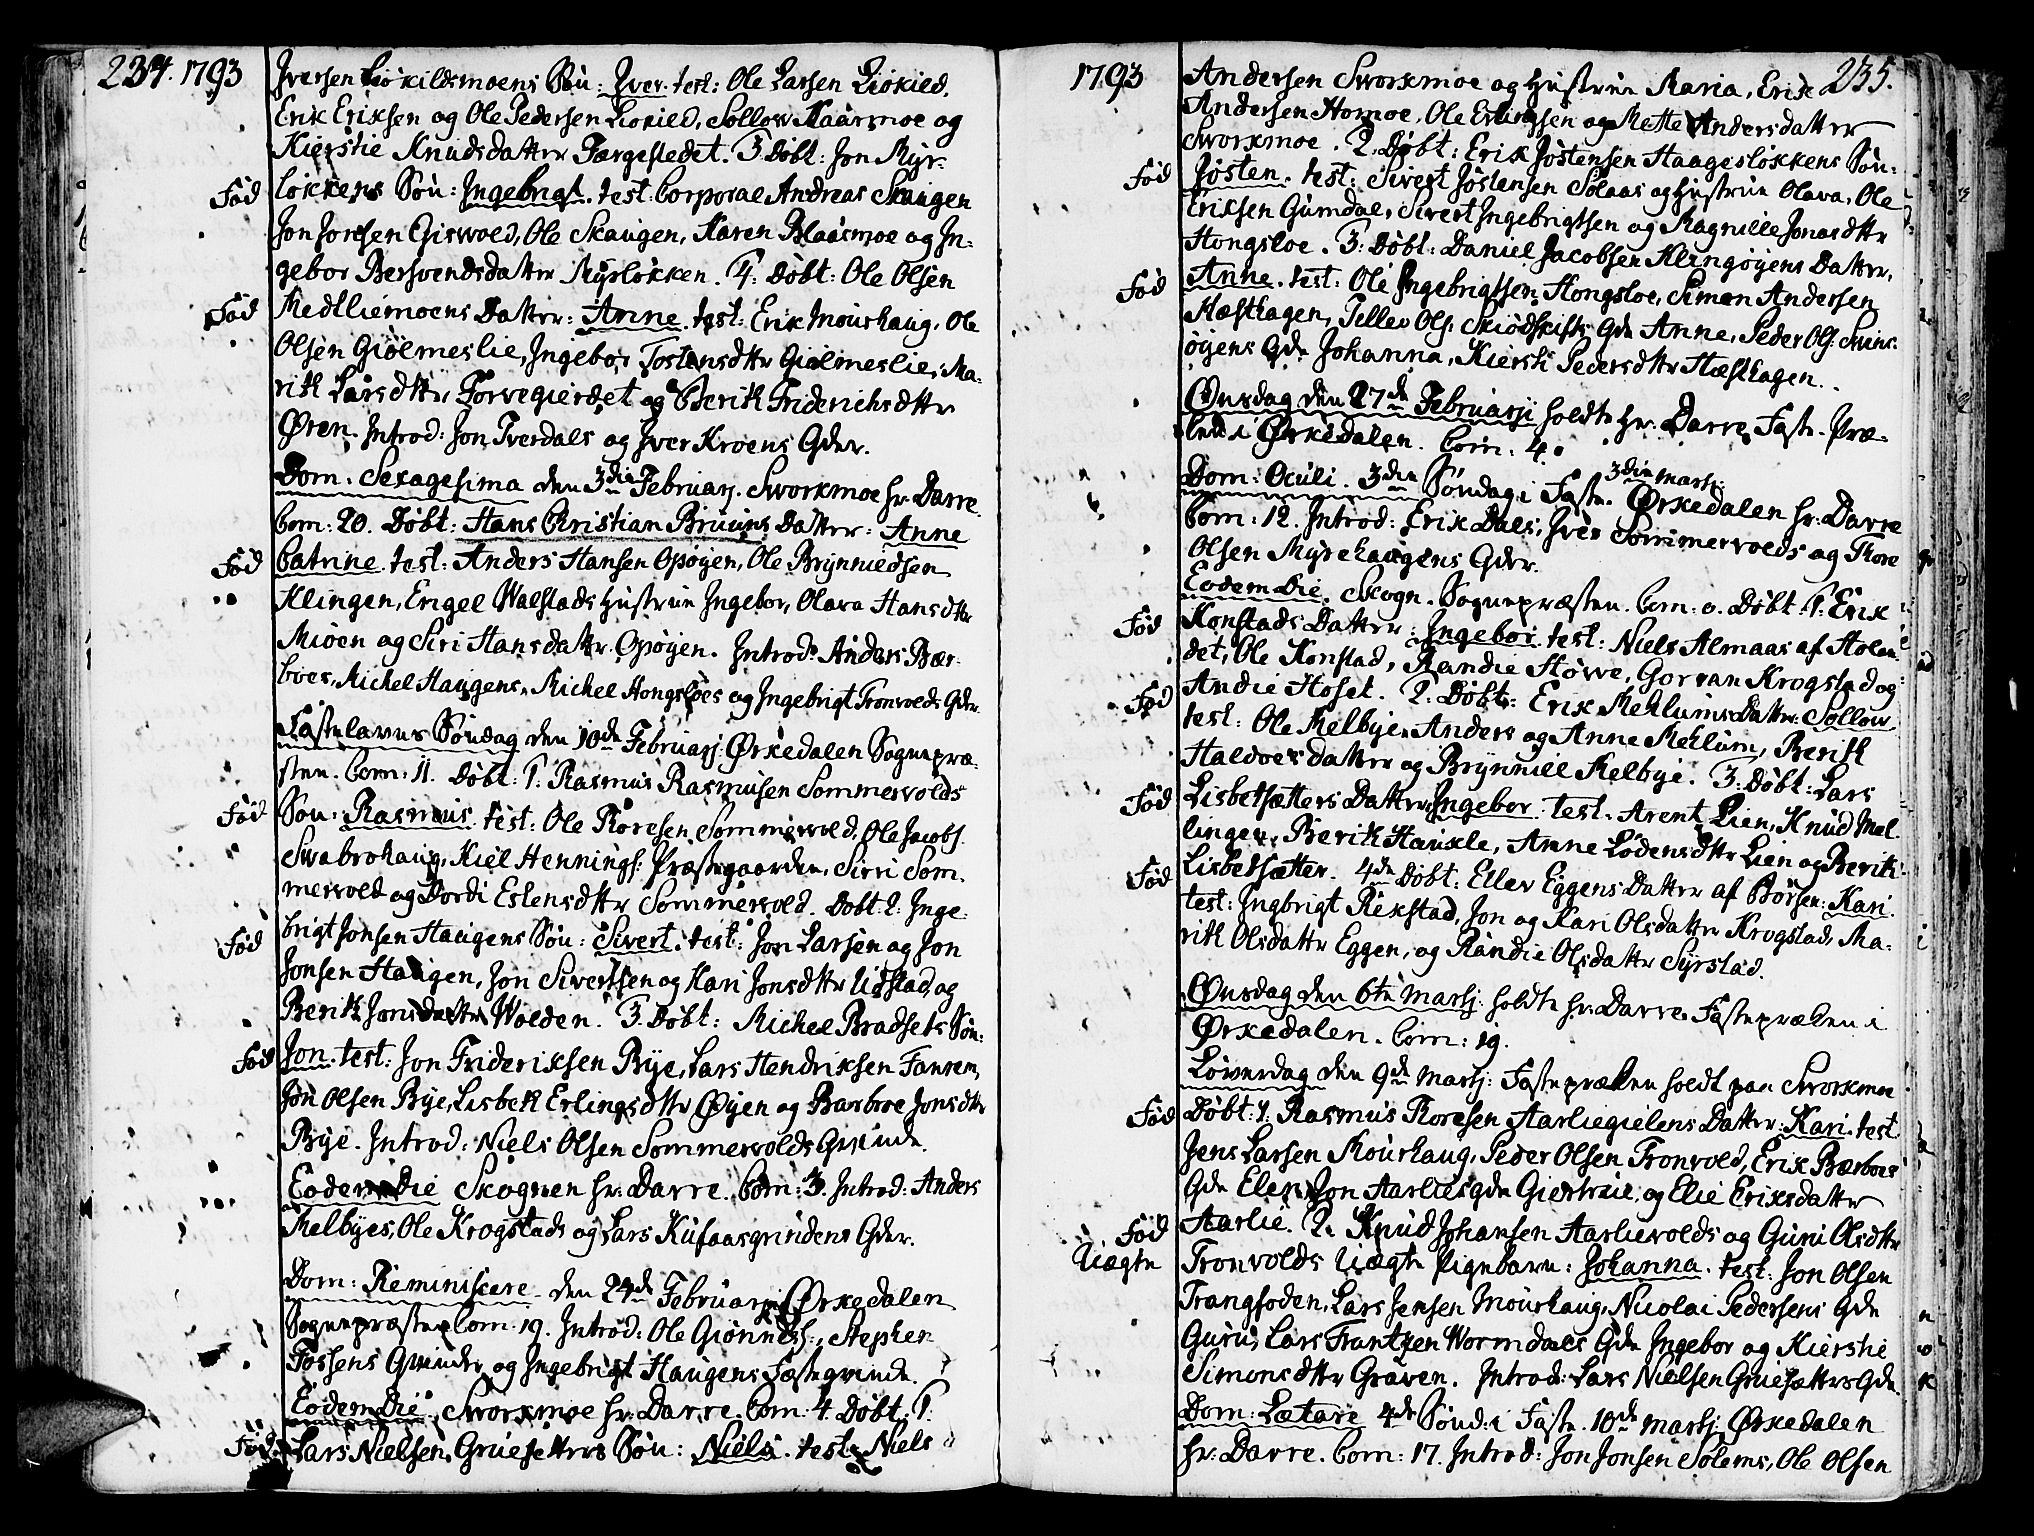 234. 1793
Iversen Liøkildsmoens Søn: Iver. test: Ole Larsen Liøkild,
Erik Eriksen og Ole Pedersen Liøkild, Sollow Kaarmoe og
Kierstie Knudsdatter Færgestedet. 3. Døbt: Jon Myr-
Fød løkkens Søn: Ingebrigt. test: Corporal Andreas Skaugen
Jon Jonsen Giswold, Ole Skaugen, Karen Blaasmoe og In-
gebor Bersvendsdatter Myrløkken. 4. Døbt: Ole Olsen
Fød Medlliemoens Datter: Anne. test: Erik Mourhaug, Ole
Olsen Giølmeslie, Ingebor Tostensdttr Giølmeslie, Ma-
rith Larsdttr Forvegierdet og Berith Friderichsdttr
Øren. Introd: Jon Tverdals og Iver Kroens Qder.
Dom: Sexagesima den 3die Februarj. Sworkmoe hr. Darre.
Com: 20. Døbt: Hans Christian Bruuns Datter: Anne
Fød Catrine. test: Anders Hansen Opøyen, Ole Brynnildsen
Klingen, Engel Walstads Hustrue Ingebor, Olava Hansdttr
Mioen og Siri Hansdattr Opøyen. Introd: Anders Bær-
boes, Michel Haugens, Michel Hongsloes og Ingebrigt Tronvolds Qder.
Fastelavns Søndag den 10de Februarj Ørkedalen Sognepræ-
sten. Com: 11. Døbt: 1. Rasmus Rasmusen Sommervolds
Fød Søn: Rasmus. test: Ole Roresen Sommervold, Ole Jacobs:
Swabrohaug, Kiel Hennings: Præstegaarden, Sirri Som-
mervold og Dordi Estensdttr Sommervold. Døbt 2: Inge-
Fød brigt Jonsen Haugens Søn: Sivert. test: Jon Larsen og Jon
Jonsen Haugen, Jon Sivertsen og Kari Jonsdttr Uistad og
Berith Jonsdatter Wolden. 3. Døbt: Michel Bradsets Søn:
Fød Jon. test: Jon Frideriksen Bye, Lars Hendriksen Fanrem,
Jon Olsen Bye, Lisbeth Erlingsdttr Øyen og Barbroe Jonsdttr
Bye. Introd: Niels Olsen Sommervolds Qvinde.
Eodem Die Skognen hr. Darre. Com: 3. Introd: Anders
Melbyes, Ole Krogstads og Lars Kufaasgrindens Qder.
Dom: Reminiscere den 24de Februarj Ørkedalen
Sognepræsten Com: 19. Introd: Ole Giønnes:, Stephen
Fossens Qvinder og Ingebrigt Haugens Fæsteqvinde.
Eodem Die Sworkmoe hr. Darre. Com: 4. Døbt. 1:
Fød Lars Nielsen Gruesetters Søn: Niels. test: Niels
1793 235.
Andersen Sworkmoe og Hustrue Maria, Erik
Andersen Homoe, Ole Erlingsen og Mette Andersdatter
Sworkmoe. 2. Døbt: Erik Jøstensen Haagesløkkens Søn:
Fød Jøsten. test: Sivert Jøstensen Solaas og Hustrue Olava, Ole
Eriksen Gumdal, Sivert Ingebrigtsen og Ragnille Jonasdttr
Hongsloe. 3. Døbt: Daniel Jacobsen Klingøyens Datter,
Fød Anne. test: Ole Ingebrigtsen Hongsloe, Simon Andersen
Hæsthagen, Tellev Ols: Skiødskifts Qde Anne, Peder Ols: Svins-
øyens Qde Johanna, Kiersti Pedersdttr Hæsthagen.
Onsdag den 27de Februarji holdte hr. Darre Faste-Præ-
ken i Ørkedalen. Com: 4.
Dom: Oculi. 3die Søndag i Faste. 3die Martj: Ørkedalen hr. Darre
Com: 12. Introd: Erik Dals, Iver Sommervolds og Thore
Olsen Myrehaugens Qder.
Eodem Die. Skogn. Sognepræsten. Com: 0. Døbt. 1: Erik
Fød Konstads Datter: Ingebor. test: Niels Almaas af Holen-
det, Ole Konstad, Randie Støwe, Goroan Krogstad og
Fød Andie Hoset. 2. Døbt: Erik Mehlums Dattr: Sollow
test: Ole Melbye, Anders og Anne Mehlum, Berith
Haldorsdatter og Brynnill Melbye. 3. Døbt: Lars
Fød Lisbetsætters Datter, Ingebor. test. Arent Lien, Knud Mel-
lingen, Berith Haukle, Anne Lodensdttr Lien og Berith
Fød Lisbetsætter. 4de Døbt: Ellev Eggens Datter af Børsen: Kari.
test: Ingbrigt Rekstad, Jon og Kari Olsdattr Krogstad, Ma-
rith Olsdattr Eggen, og Randie Olsdattr Syrstad.
Onsdag den 6te Martj: holdte hr. Darre Fastepræken i
Ørkedalen. Com: 19.
Løverdag den 9de Martj: Fasteprækken holdt paa Sworkmoe
Fød Døbt: 1. Rasmus Roresen Aarliegielens Datter: Kari. test
Jens Larsen Mourhaug, Peder Olsen Tronvold, Erik Bærboes
Qde Elen, Jon Aarlies Qde Giertruie og Elie Eriksdatter
Fød Aarlie. 2. Knud Johansen Aarlievolds og Guni Olsdttr
Uægte Tronvolds Uægte Pigebarn: Johanna. test: Jon Olsen
Trangfoden, Lars Jensen Mourhaug, Nicolai Pedersens Qde
Guru, Lars Frantzen Wormdals Qde Ingebor og Kierstie
Simonsdttr Graven. Introd: Lars Nielsen Gruesætters Qde.
Dom: Lætare 4de Sønd: i Faste. 10de Martj Ørkedalen
hr. Darre. Com: 17. Introd: Jon Jonsen Solems, Ole Olsen